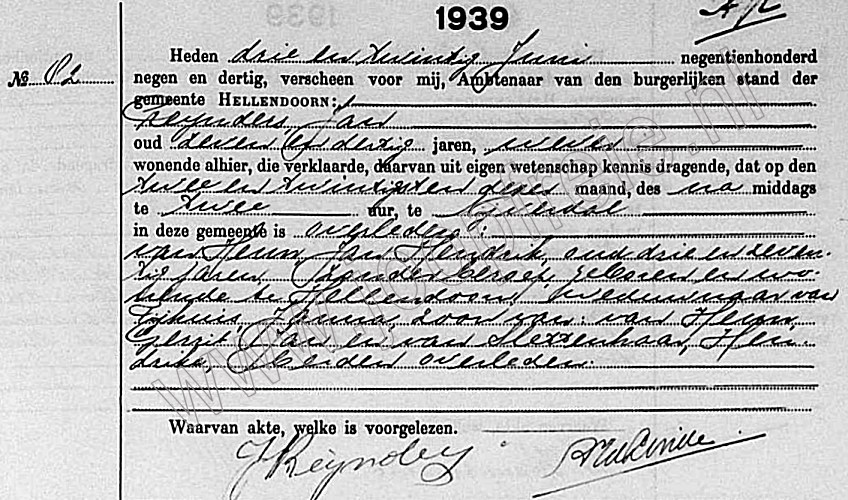 1939
Heden drie en twintig Juni negentienhonderd
No 82 negen en dertig, verscheen voor mij, Ambtenaar van den burgerlijken stand der
gemeente HELLENDOORN:
Reynders, Jan
oud zeven en dertig jaren, wever
wonende alhier, die verklaarde, daarvan uit eigen wetenschap kennis dragende, dat op den
twee en twintigsten dezer maand, des na middags
te twee uur, te Nijverdal
in deze gemeente is overleden:
van Heun, Jan Hendrik, oud drie en zeven-
tig jaren, zonder beroep, geboren en wo-
nende te Hellendoorn, weduwnaar van
Janna, zoon van: van Heun,
Gerrit Jan en van Hen-
drika, beiden overleden.
Waarvan akte, welke is voorgelezen.
J Reynders